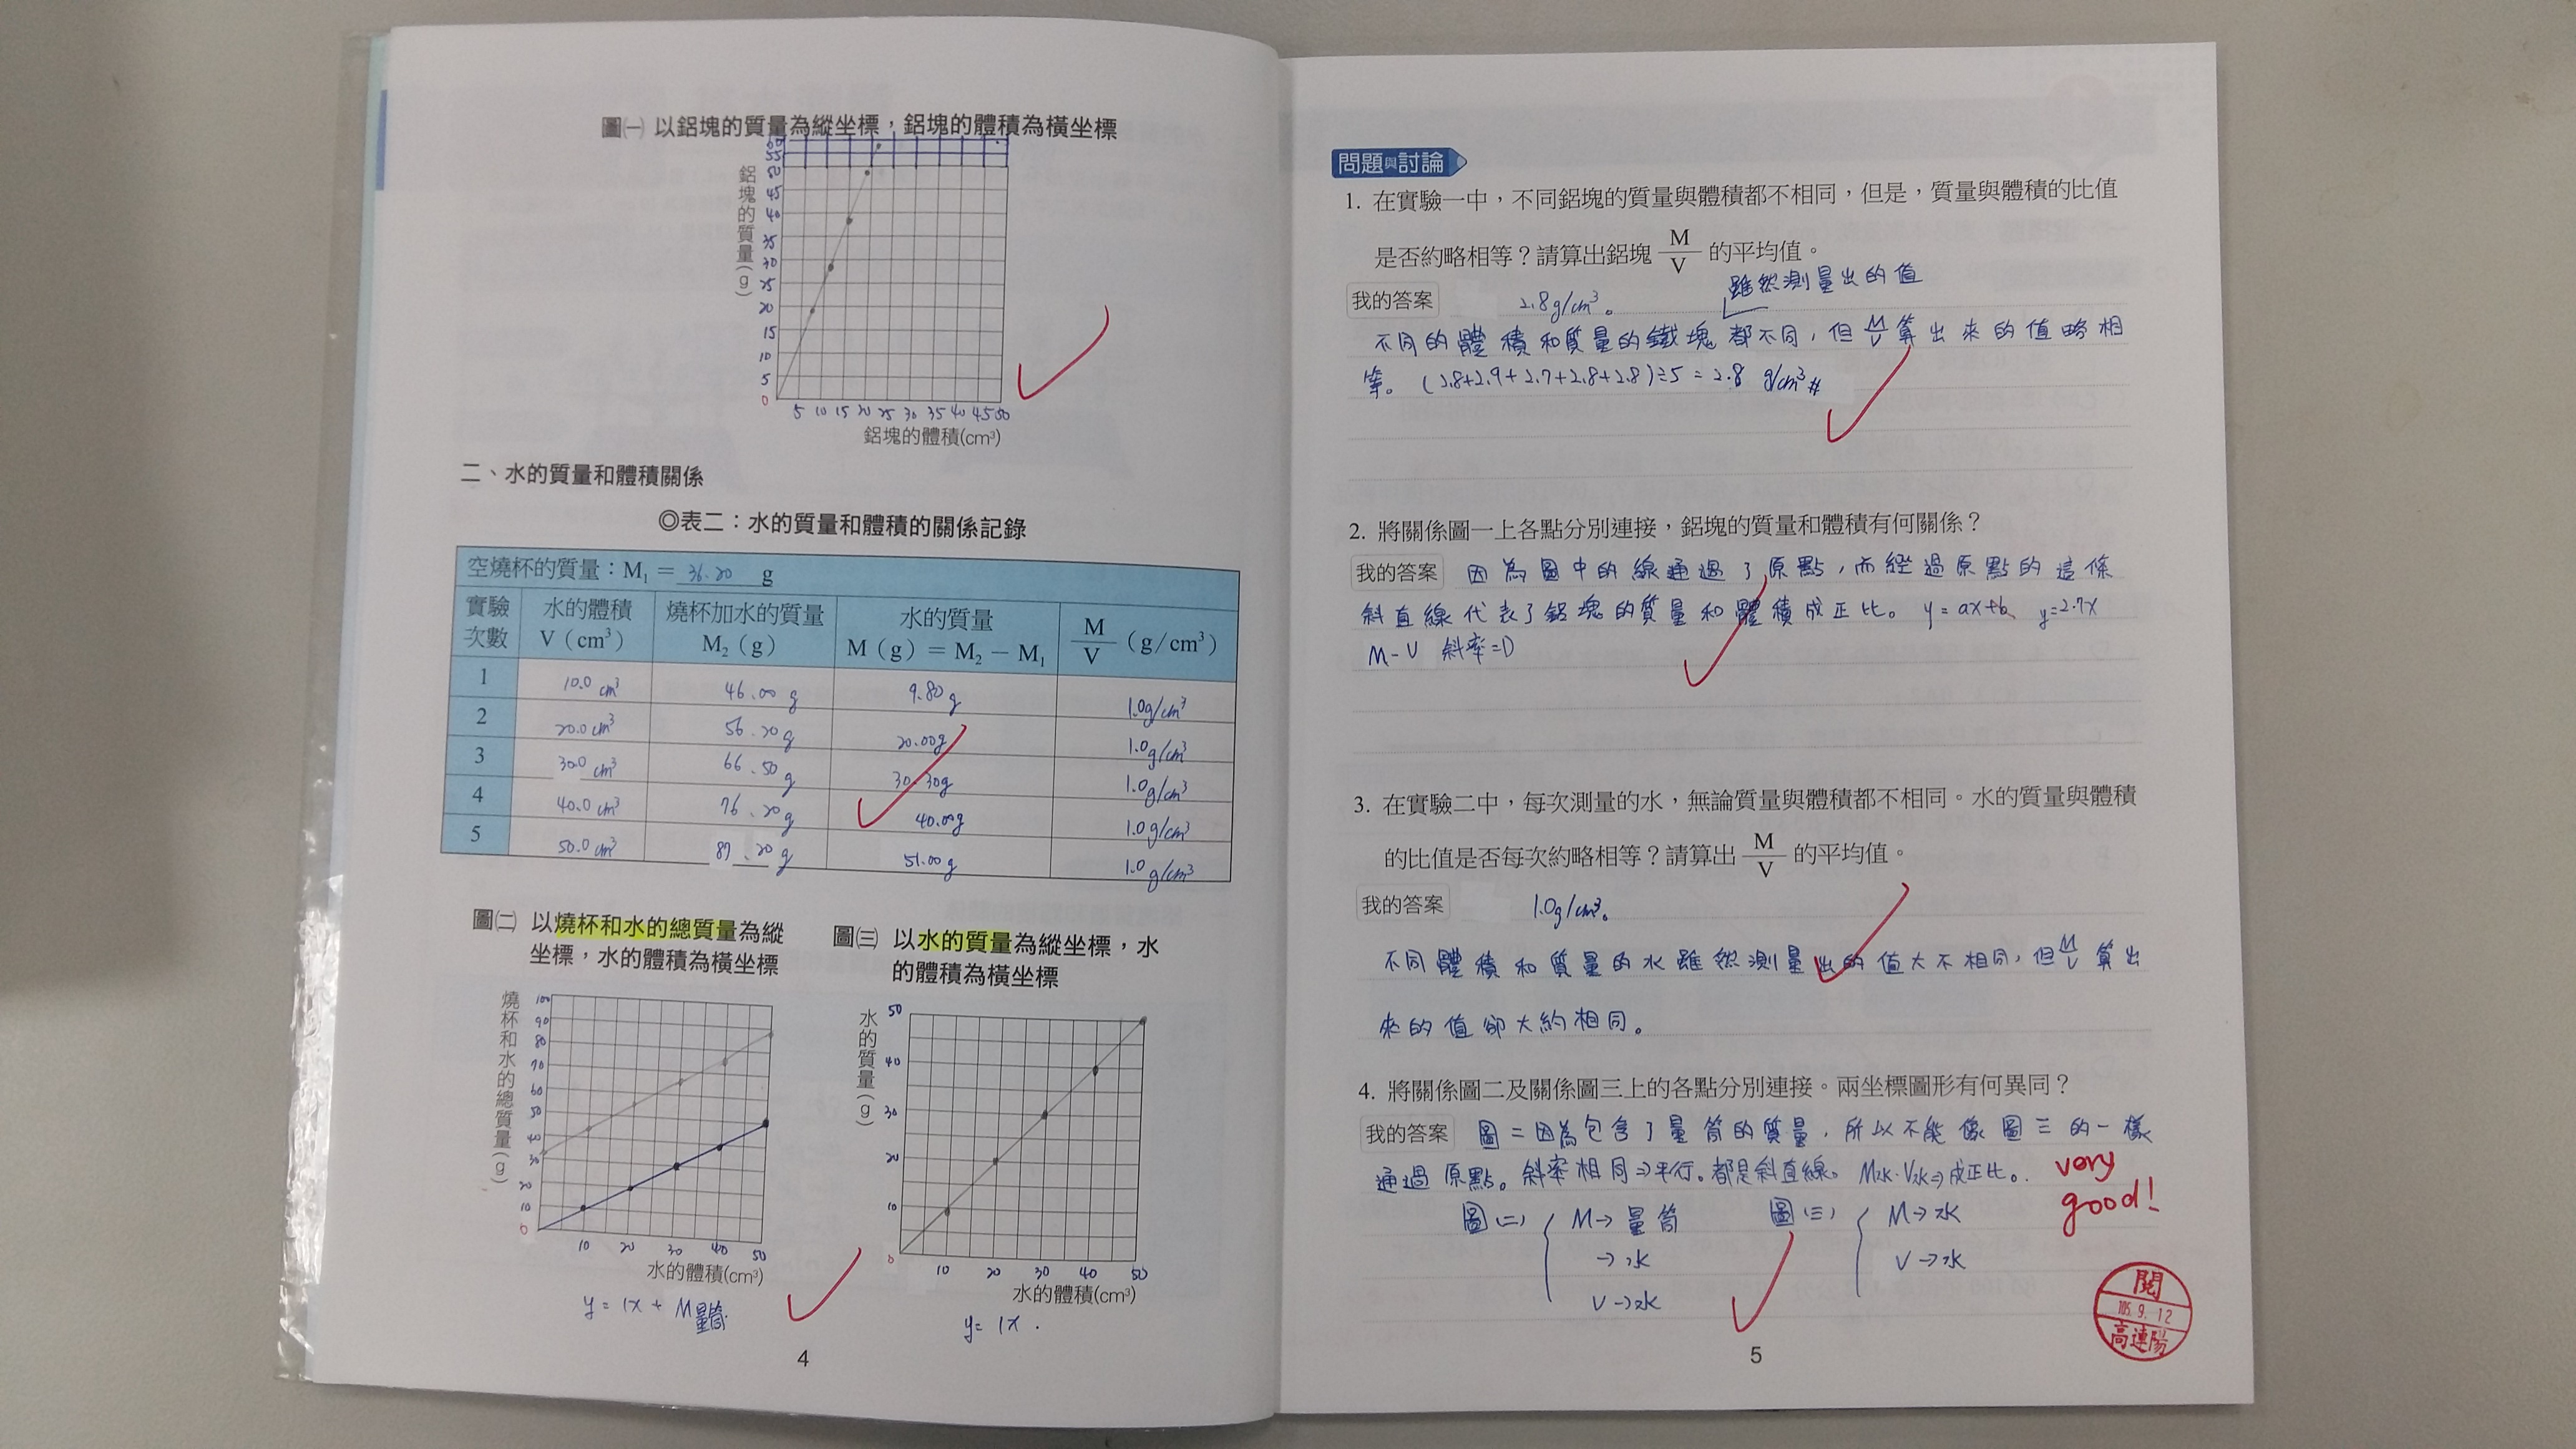 圖㈠ 以鋁塊的質量為縱坐標，鋁塊的體積為橫坐標
鋁塊的質量(g)
60
55
50
45
40
35
30
25
20
15
10
5
0
5 10 15 20 25 30 35 40 45 50
鋁塊的體積(cm³)
二、水的質量和體積關係
◎表二：水的質量和體積的關係記錄
空燒杯的質量：M₁ = 36.20 g
實驗次數 水的體積 V（cm³） 燒杯加水的質量 M₂（g） 水的質量 M（g）= M₂ − M₁ M/V（g/cm³）
1 10.0 cm³ 46.00 g 9.80 g 1.0 g/cm³
2 20.0 cm³ 56.20 g 20.00 g 1.0 g/cm³
3 30.0 cm³ 66.50 g 30.30 g 1.0 g/cm³
4 40.0 cm³ 76.20 g 40.00 g 1.0 g/cm³
5 50.0 cm³ 87.20 g 51.00 g 1.0 g/cm³
圖㈡ 以燒杯和水的總質量為縱
坐標，水的體積為橫坐標
燒杯和水的總質量(g)
100
90
80
70
60
50
40
30
20
10
0
10 20 30 40 50
水的體積(cm³)
y = 1x + M量筒.
圖㈢ 以水的質量為縱坐標，水
的體積為橫坐標
水的質量(g)
50
40
30
20
10
0
10 20 30 40 50
水的體積(cm³)
y = 1x .
4
問題與討論
1. 在實驗一中，不同鋁塊的質量與體積都不相同，但是，質量與體積的比值
是否約略相等？請算出鋁塊 M/V 的平均值。
我的答案 2.8 g/cm³。 雖然測量出的值
不同的體積和質量的鐵塊都不同，但 M/V 算出來的值略相
等。(2.8+2.9+2.7+2.8+2.8)÷5 = 2.8 g/cm³ #
2. 將關係圖一上各點分別連接，鋁塊的質量和體積有何關係？
我的答案 因為圖中的線通過了原點，而經過原點的這條
斜直線代表了鋁塊的質量和體積成正比。 y = ax+b、 y=2.7x
M - V 斜率=D
3. 在實驗二中，每次測量的水，無論質量與體積都不相同。水的質量與體積
的比值是否每次約略相等？請算出 M/V 的平均值。
我的答案 1.0 g/cm³。
不同體積和質量的水雖然測量出的值大不相同，但 M/V 算出
來的值卻大約相同。
4. 將關係圖二及關係圖三上的各點分別連接。兩坐標圖形有何異同？
我的答案 圖二因為包含了量筒的質量，所以不能像圖三的一樣
通過原點。斜率相同⇒平行。都是斜直線。 M水·V水⇒成正比。.
very
good!
圖(二) { M→量筒 圖(三) { M→水
→水 V→水
V→水
閱
105. 9. 12
高連陽
5